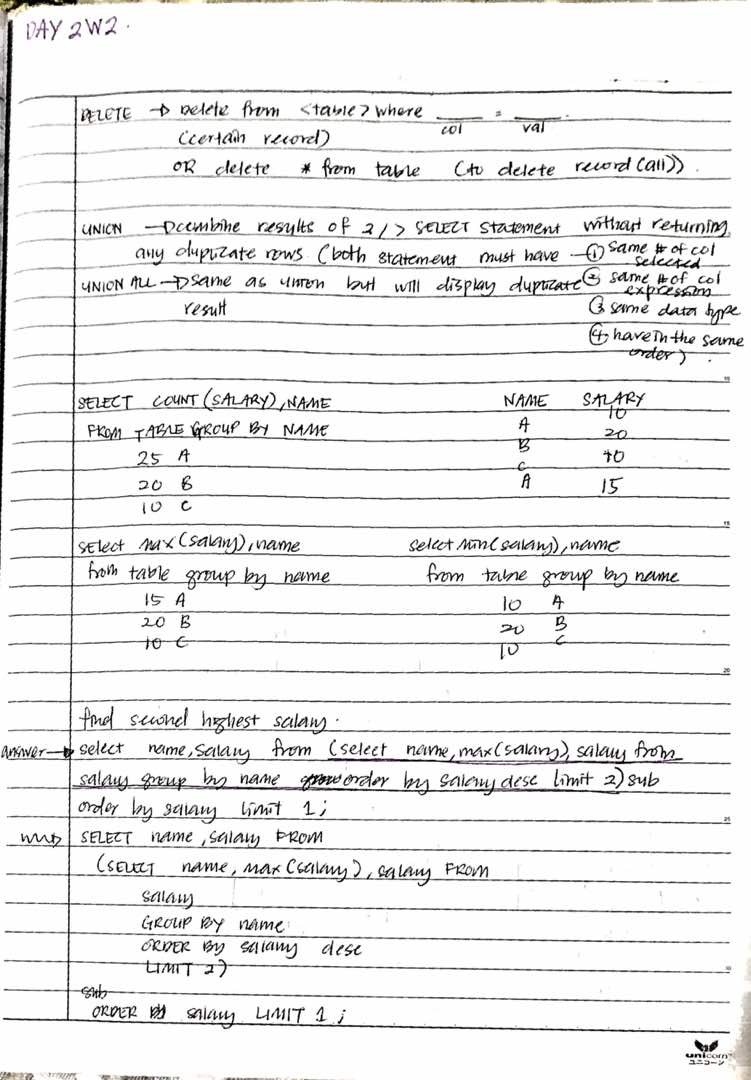 DAY 2W2.
DELETE → Delete from <table> where ___ = ___.
col val
(certain record)
OR delete * from table (to delete record (all)).
UNION → combine results of 2/> SELECT statement without returning
any duplicate rows (both statement must have - ① same # of col selected
UNION ALL → same as union but will display duplicate ② same # of col expression
result ③ same data type
④ have in the same order).
SELECT COUNT(SALARY), NAME NAME SALARY
FROM TABLE GROUP BY NAME A 10
25 A B 20
20 B C 10
10 C A 15
select max(salary), name select min(salary), name
from table group by name from table group by name
15 A 10 A
20 B 20 B
10 C 10 C
find second highest salary.
answer → select name, salary from (select name, max(salary), salary from
salary group by name order by salary desc limit 2) sub
order by salary limit 1;
SELECT name, salary FROM
(SELECT name, max(salary), salary FROM
salary
GROUP BY name
ORDER BY salary desc
LIMIT 2)
sub
ORDER BY salary LIMIT 1;
unicorn
ユニコーン